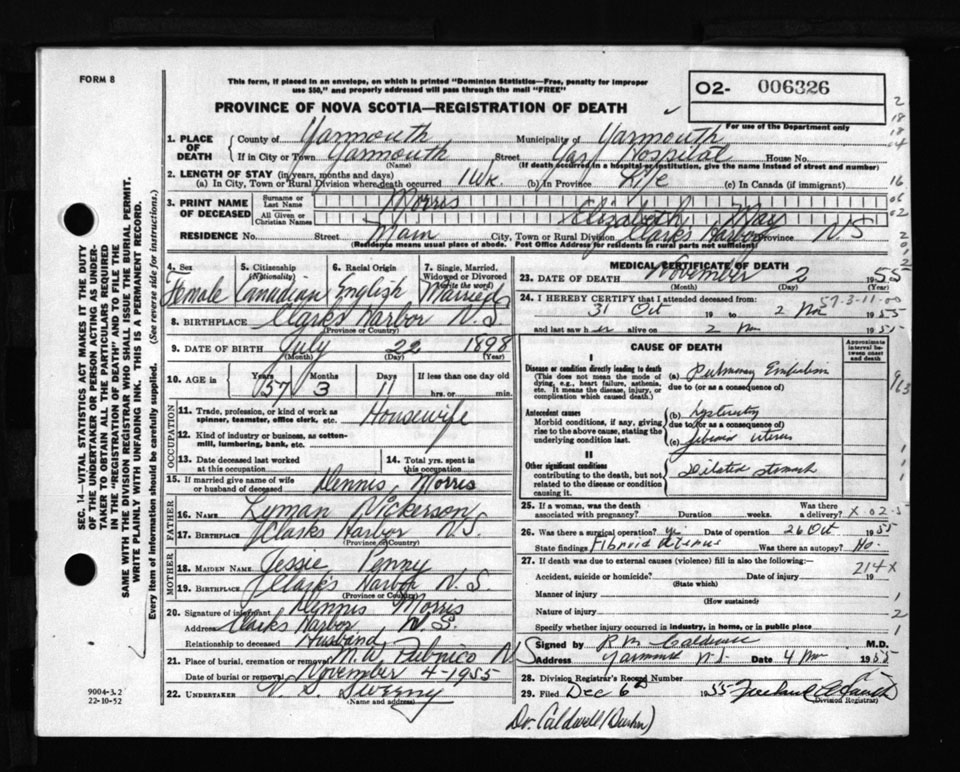 FORM 8
This form, if placed in an envelope, on which is printed "Dominion Statistics—Free, penalty for improper
use $50," and properly addressed will pass through the mail "FREE"
PROVINCE OF NOVA SCOTIA—REGISTRATION OF DEATH
02- 006326
For use of the Department only
SEC. 14—VITAL STATISTICS ACT MAKES IT THE DUTY
OF THE UNDERTAKER OR PERSON ACTING AS UNDER-
TAKER TO OBTAIN ALL THE PARTICULARS REQUIRED
IN THE "REGISTRATION OF DEATH" AND TO FILE THE
SAME WITH THE DIVISION REGISTRAR WHO SHALL ISSUE THE BURIAL PERMIT.
WRITE PLAINLY WITH UNFADING INK. THIS IS A PERMANENT RECORD.
Every item of information should be carefully supplied. (See reverse side for instructions.)
1. PLACE OF DEATH County of Yarmouth Municipality of Yarmouth
If in City or Town Yarmouth Street Yar. Hospital House No.
(Name) (If death occurred in a hospital or institution, give the name instead of street and number)
2. LENGTH OF STAY (in years, months and days)
(a) In City, Town or Rural Division where death occurred 1 wk. (b) In Province Life (c) In Canada (if immigrant)
3. PRINT NAME OF DECEASED Surname or Last Name Morris
All Given or Christian Names Elizabeth May
RESIDENCE No. Street Main City, Town or Rural Division Clarks Harbor Province N S
(Residence means usual place of abode. Post Office Address for residents in rural parts not sufficient)
4. Sex 5. Citizenship (Nationality) 6. Racial Origin 7. Single, Married, Widowed or Divorced (write the word)
Female Canadian English Married
8. BIRTHPLACE Clarks Harbor N.S.
(Province or Country)
9. DATE OF BIRTH July 22 1898
(Month) (Day) (Year)
10. AGE in Years Months Days If less than one day old
57 3 11 hrs. or min.
OCCUPATION
11. Trade, profession, or kind of work as spinner, teamster, office clerk, etc. Housewife
12. Kind of industry or business, as cotton-mill, lumbering, bank, etc.
13. Date deceased last worked at this occupation 14. Total yrs. spent in this occupation
15. If married give name of wife or husband of deceased Dennis Morris
FATHER
16. Name Lyman Nickerson
17. BIRTHPLACE Clarks Harbor N.S.
(Province or Country)
MOTHER
18. MAIDEN NAME Jessie Penny
19. BIRTHPLACE Clarks Harbor N.S.
(Province or Country)
20. Signature of informant Dennis Morris
Address Clarks Harbor N.S.
Relationship to deceased Husband
21. Place of burial, cremation or removal M.W. Pubnico N S
Date of burial or removal November 4-1955
22. UNDERTAKER V. S. Sweeny
(Name and address)
9004-3.2
22-10-52
MEDICAL CERTIFICATE OF DEATH
23. DATE OF DEATH November 2 1955
(Month) (Day)
57-3-11-00
24. I HEREBY CERTIFY that I attended deceased from:
31 Oct 19 to 2 Nov 1955
and last saw her alive on 2 Nov 1955
CAUSE OF DEATH
Approximate interval between onset and death
I
Disease or condition directly leading to death (a) Pulmonary Embolism
(This does not mean the mode of dying, e.g., heart failure, asthenia, etc. It means the disease, injury, or complication which caused death.)
due to (or as a consequence of)
Antecedent causes (b) Hysterectomy
Morbid conditions, if any, giving rise to the above cause, stating the underlying condition last.
due to (or as a consequence of)
(c) fibroid uterus
II
Other significant conditions Dilated stomach
contributing to the death, but not related to the disease or condition causing it.
25. If a woman, was the death associated with pregnancy? Duration weeks. Was there a delivery? X 02-5
26. Was there a surgical operation? yes Date of operation 26 Oct 1955
State findings Fibroid Uterus Was there an autopsy? No.
27. If death was due to external causes (violence) fill in also the following:— 214X
Accident, suicide or homicide? Date of injury 19
(State which)
Manner of injury
(How sustained)
Nature of injury
Specify whether injury occurred in industry, in home, or in public place
Signed by R M Caldwell M.D.
Address Yarmouth N.S. Date 4 Nov 1955
28. Division Registrar's Record Number
29. Filed Dec 6th 1955
(Division Registrar)
Dr. Caldwell